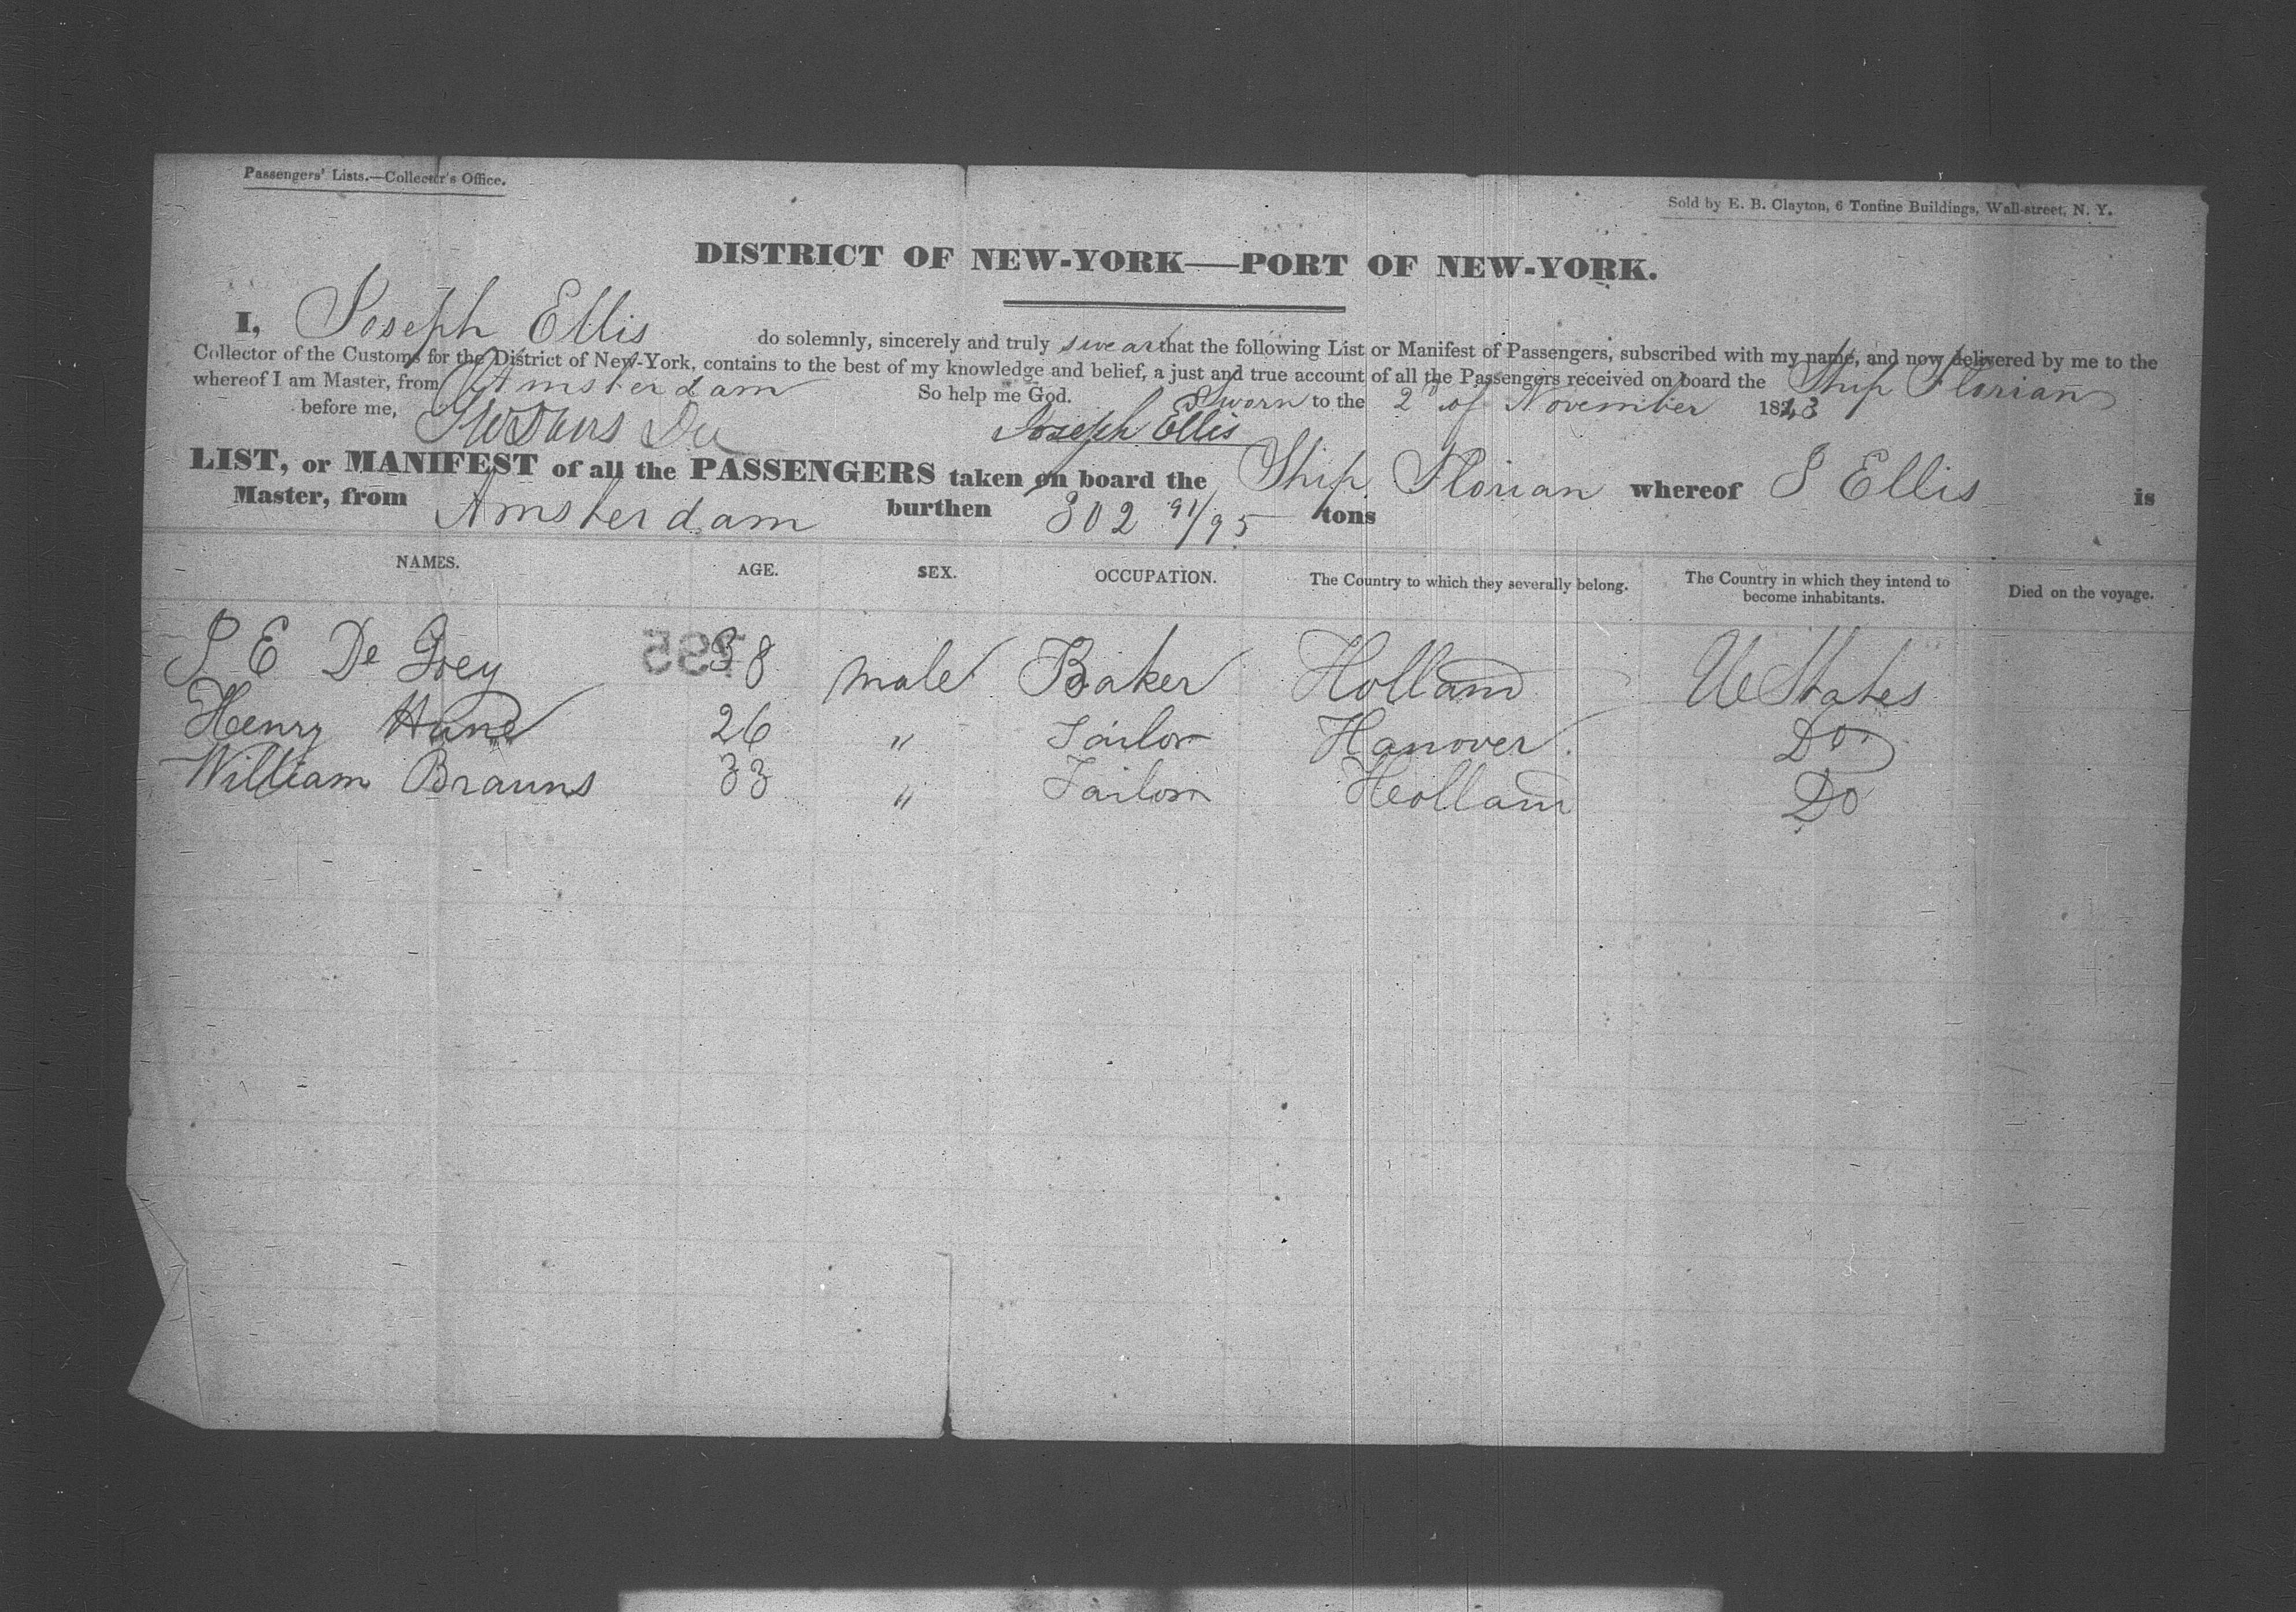 Passengers' Lists.—Collector's Office.
Sold by E. B. Clayton, 6 Tontine Buildings, Wall-street, N. Y.
DISTRICT OF NEW-YORK—PORT OF NEW-YORK.
I, Joseph Ellis do solemnly, sincerely and truly swear that the following List or Manifest of Passengers, subscribed with my name, and now delivered by me to the
Collector of the Customs for the District of New-York, contains to the best of my knowledge and belief, a just and true account of all the Passengers received on board the Ship Florian
whereof I am Master, from Amsterdam So help me God. Sworn to the 2d of November 1843
before me, Joseph Ellis
LIST, or MANIFEST of all the PASSENGERS taken on board the Ship Florian whereof J Ellis is
Master, from Amsterdam burthen 302 91/95 tons
NAMES. AGE. SEX. OCCUPATION. The Country to which they severally belong. The Country in which they intend to become inhabitants. Died on the voyage.
J E De Goey 38 male Baker Holland U States
Henry 26 " Tailor Hanover Do
William Brauns 33 " Tailor Holland Do